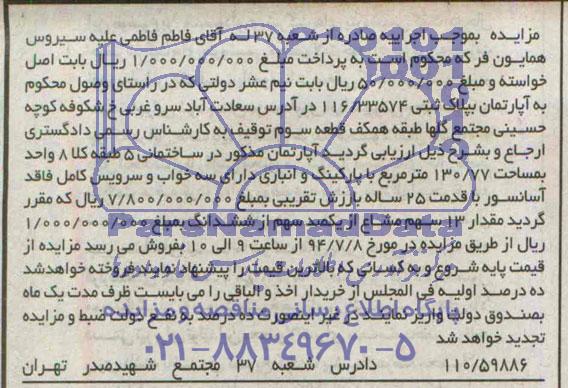 مزایده بموجب اجراییه صادره از شعبه ۳۷ له آقای فاطم فاطمی علیه سیروس
همایون فر که محکوم است به پرداخت مبلغ ۱/۰۰۰/۰۰۰/۰۰۰ ریال بابت اصل
خواسته و مبلغ ۵۰/۰۰۰/۰۰۰ ریال بابت نیم عشر دولتی که در راستای وصول محکوم
به آپارتمان بپلاک ثبتی ۱۱۶/۳۳۵۷۴ در آدرس سعادت آباد سرو غربی خ شکوفه کوچه
حسینی مجتمع گلها طبقه همکف قطعه سوم توقیف به کارشناس رسمی دادگستری
ارجاع و بشرح ذیل ارزیابی گردید آپارتمان مذکور در ساختمانی ۵ طبقه کلا ۸ واحد
بمساحت ۱۳۰/۷۷ مترمربع با پارکینگ و انباری دارای سه خواب و سرویس کامل فاقد
آسانسور با قدمت ۲۵ ساله بارزش تقریبی بمبلغ ۷/۸۰۰/۰۰۰/۰۰۰ ریال که مقرر
گردید مقدار ۱۳ سهم مشاع از یکصد سهم از ششدانگ بمبلغ ۱/۰۰۰/۰۰۰/۰۰۰
ریال از طریق مزایده در مورخ ۹۴/۷/۸ از ساعت ۹ الی ۱۰ بفروش می رسد مزایده از
قیمت پایه شروع و به کسانی که بالاترین قیمت را پیشنهاد نمایند فروخته خواهدشد
ده درصد اولیه فی المجلس از خریدار اخذ و الباقی را می بایست ظرف مدت یک ماه
بصندوق دولت واریز نمایند در غیر اینصورت ده درصد به نفع دولت ضبط و مزایده
تجدید خواهد شد
۱۱۰/۵۹۸۸۶ دادرس شعبه ۳۷ مجتمع شهیدصدر تهران
ParsNamadData
پایگاه اطلاع رسانی مناقصه و مزایده
۰۲۱-۸۸۳۴۹۶۷۰-۵